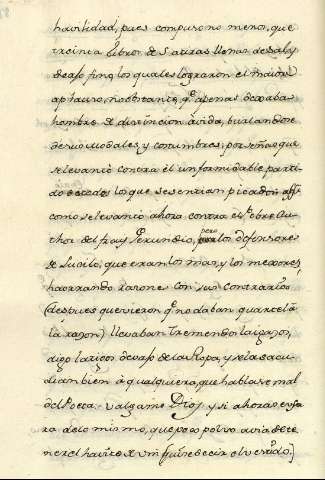 havilidad, pues compuso no menos, que
treinta libros de Satiras llenas de sal, y
de aso fino, los quales lograron el maior
aplauso, no obstante, qe. apenas dexaba
hombre de distincion à vida, burlandose
de sus modales, y costumbres, por señas que
se levantò contra èl un formidable parti-
do de todos los que se sentian picados, assi
como se levantò ahora contra el Pobre Au-
thor del fray Gerundio, pero los defensores
de Lucilo, que eran los mas, y los mexores,
haorrando razones con sus contrarios
(despues que vieron qe. no daban quartel à
la razon) llevaban tremendos latigazos,
digo latigos debajo de la Ropa, y se la sacu-
dian bien à qualquiera, que hablase mal
del Poeta. valgame Dios, y si ahora se usa-
ra de lo mismo, que poco polvo avia de te-
ner el havito de Vm